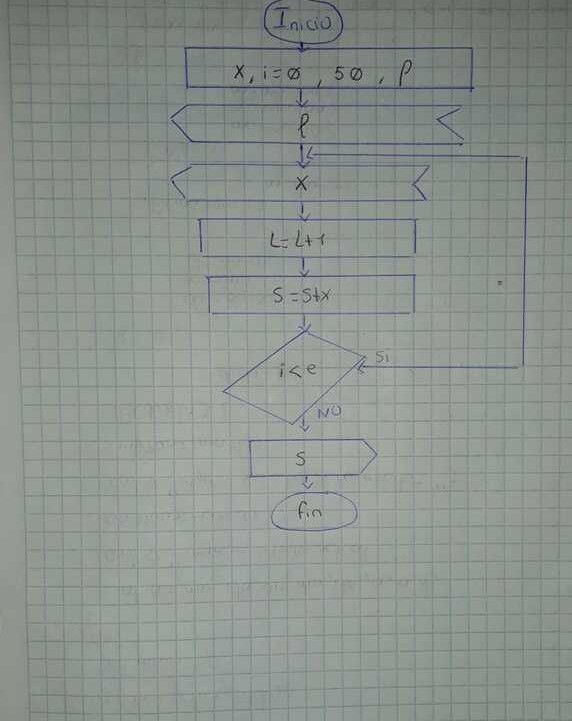 Inicio
x, i=0, 50, P
P
X
L=L+1
S=S+x
i<e
Si
NO
S
fin